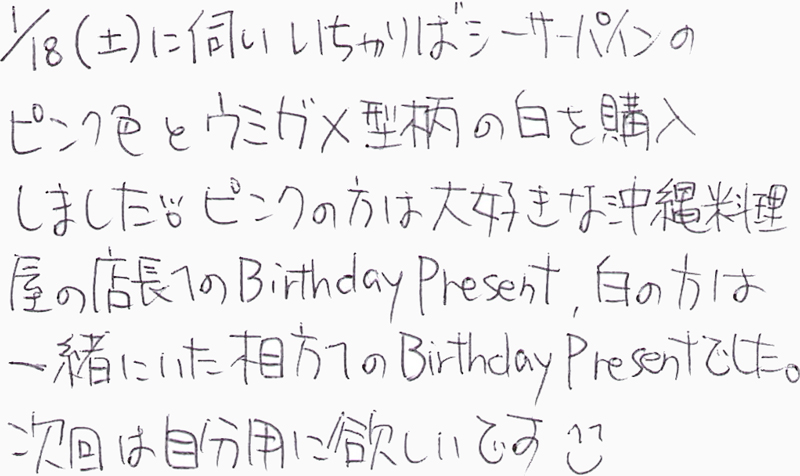 1/18(土)に伺いいちゃりばシーサーパインの
ピンク色とウミガメ型柄の白を購入
しました。ピンクの方は大好きな沖縄料理
屋の店長へのBirthday Present, 白の方は
一緒にいた相方へのBirthday Presentでした。
次回は自分用に欲しいです